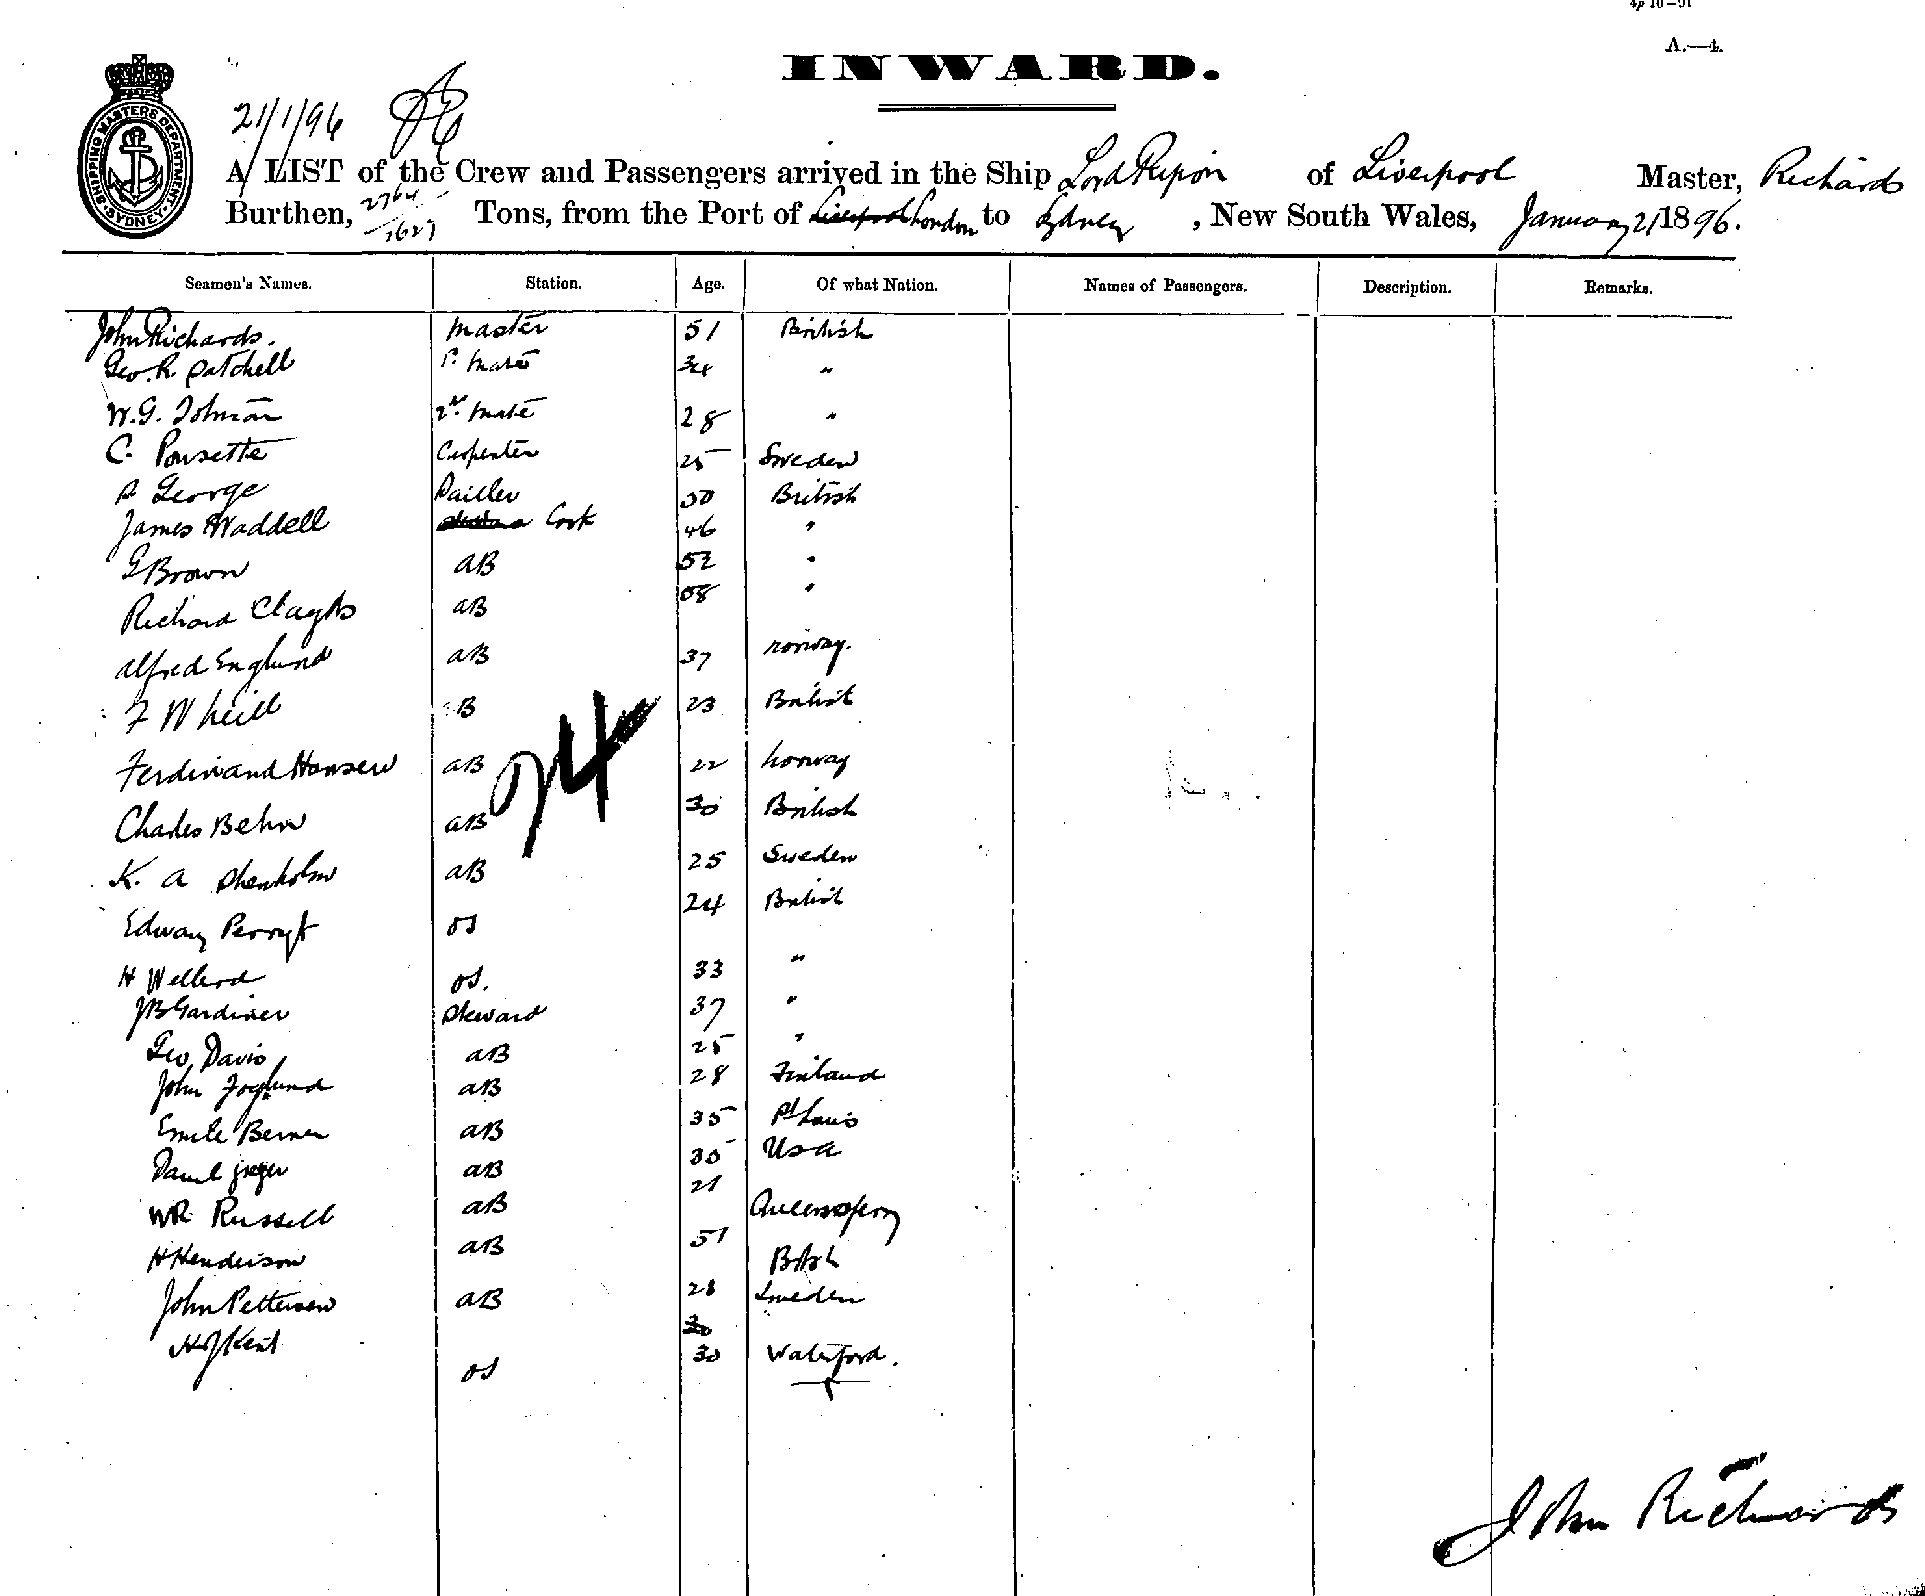 4p 10–91
A.—4.
INWARD.
SHIPPING MASTERS DEPARTMENT
SYDNEY
21/1/96
A LIST of the Crew and Passengers arrived in the Ship Lord Ripon of Liverpool Master, Richards
Burthen, 2764 1627 Tons, from the Port of Liverpool London to Sydney, New South Wales, January 21 1896.
Seamen's Names. Station. Age. Of what Nation. Names of Passengers. Description. Remarks.
John Richards. Master 51 British
Geo. R Patchell 1st Mate 34 "
W. G. Johnson 2nd Mate 28 "
C. Pousette Carpenter 25 Sweden
George 50 British
James Waddell Cook 46 "
G Brown AB 52 "
Richard AB 58 "
Alfred Englund AB 37 Norway.
F AB 23 British
Ferdinand Hansen AB 22 Norway
Charles Behn AB 30 British
K. A Stenholm AB 25 Sweden
24
OS 24 British
H OS. 33 "
J B Gardiner Steward 37 "
Geo, Davis AB 25 "
John AB 28 Finland
Emile AB 35 St Louis
AB 30 USA
WR Russell AB 21 Queensferry
H Henderson AB 51 British
John Pettersen AB 28 Sweden
30
H J Kent OS 30 Waterford.
John Richards